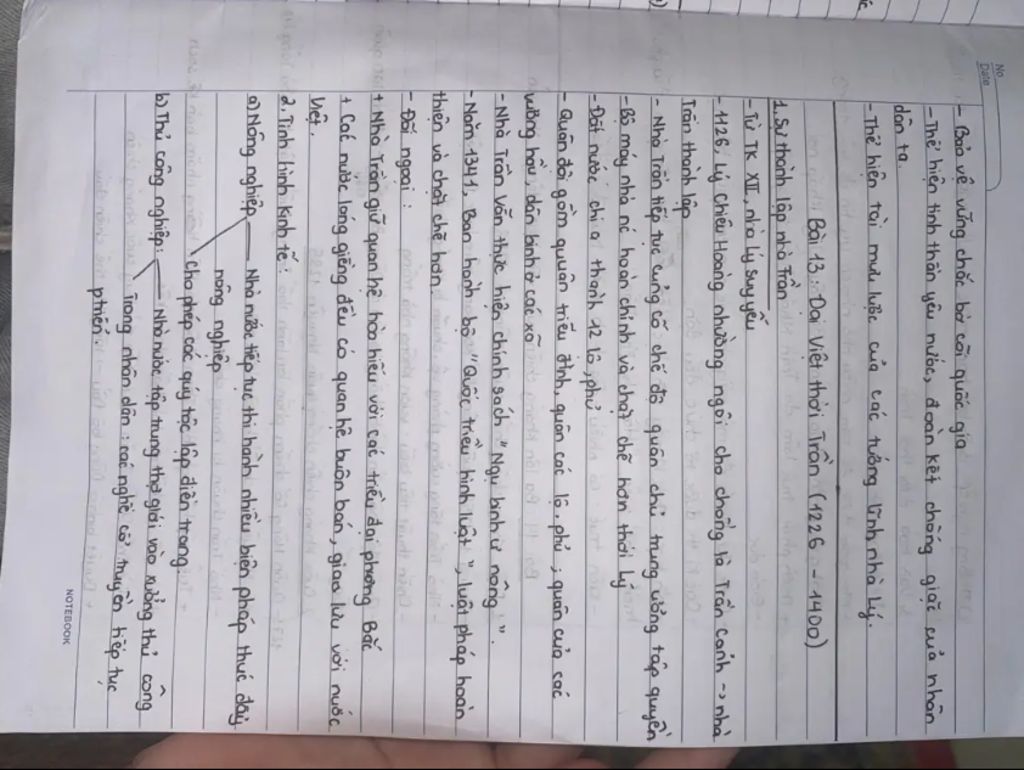 No
Date
- Bảo vệ vững chắc bờ cõi quốc gia
- Thể hiện tinh thần yêu nước, đoàn kết chống giặc của nhân
dân ta.
- Thể hiện tài mưu lược của các tướng lĩnh nhà Lý.
Bài 13: Đại Việt thời Trần (1226 - 1400)
1. Sự thành lập nhà Trần
- Từ TK XII, nhà Lý suy yếu
- 1126, Lý Chiêu Hoàng nhường ngôi cho chồng là Trần Cảnh -> nhà
Trần thành lập
- Nhà Trần tiếp tục củng cố chế độ quân chủ trung ương tập quyền
- Bộ máy nhà nc hoàn chỉnh và chặt chẽ hơn thời Lý
- Đất nước chia thành 12 lộ, phủ
- Quân đội gồm quân triều đình, quân các lộ phủ; quân của các
vương hầu, dân binh ở các xã
- Nhà Trần vẫn thực hiện chính sách "Ngụ binh ư nông".
- Năm 1341. Ban hành bộ "Quốc triều hình luật", luật pháp hoàn
thiện và chặt chẽ hơn.
- Đối ngoại:
+ Nhà Trần giữ quan hệ hòa hiếu với các triều đại phương Bắc
+ Các nước láng giềng đều có quan hệ buôn bán, giao lưu với nước
Việt.
2. Tình hình kinh tế:
a) Nông nghiệp Nhà nước tiếp tục thi hành nhiều biện pháp thúc đẩy
nông nghiệp
Cho phép các quý tộc lập điền trang.
b) Thủ công nghiệp: Nhà nước tập trung thợ giỏi vào xưởng thủ công
Trong nhân dân: các nghề cổ truyền tiếp tục
phát triển.
NOTEBOOK